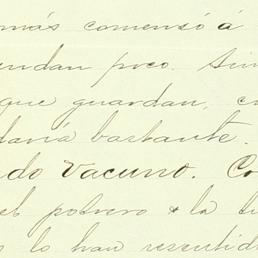 más comensó á
endan poco. Sin
que guardan, c
davia bastante.
do Vacuno. Co
el potrero & la
lo han resentid